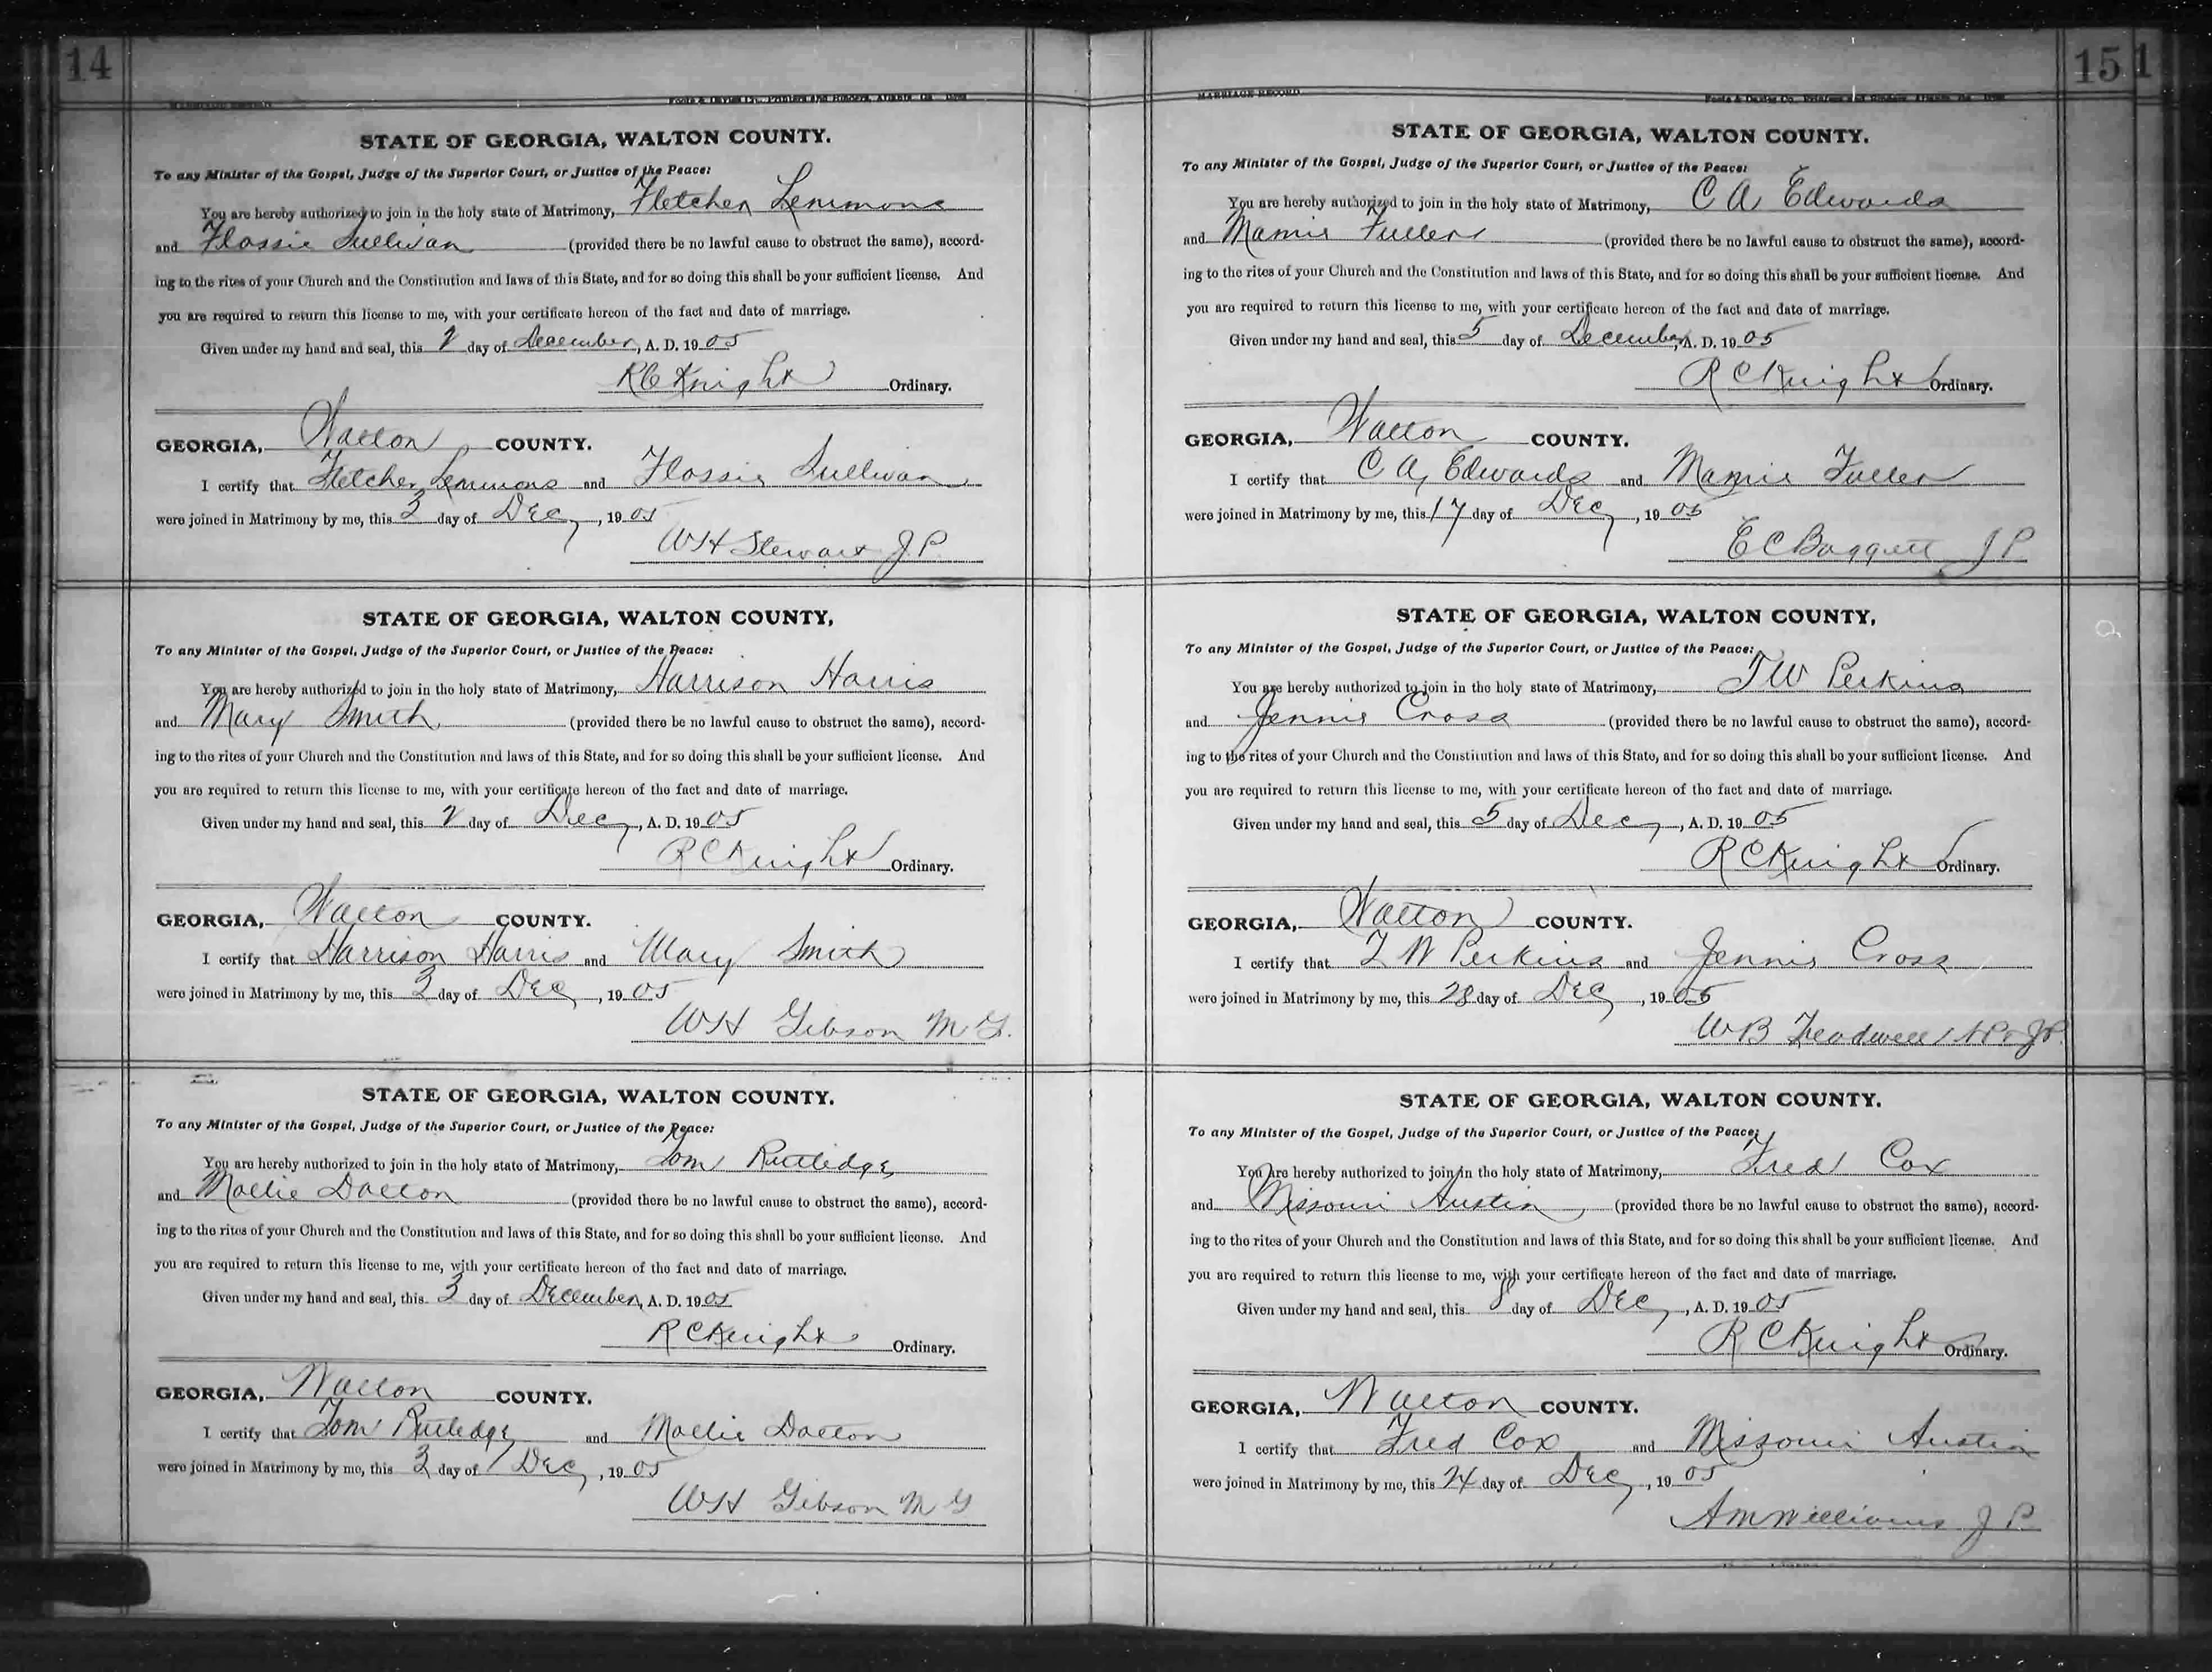 14
MARRIAGE RECORD
Foote & Davies Co., Printers and Binders, Atlanta, Ga.
STATE OF GEORGIA, WALTON COUNTY.
To any Minister of the Gospel, Judge of the Superior Court, or Justice of the Peace:
You are hereby authorized to join in the holy state of Matrimony, Fletcher Lemmons
and Flossie Sullivan (provided there be no lawful cause to obstruct the same), accord-
ing to the rites of your Church and the Constitution and laws of this State, and for so doing this shall be your sufficient license. And
you are required to return this license to me, with your certificate hereon of the fact and date of marriage.
Given under my hand and seal, this 2 day of December, A. D. 1905
RC Knight Ordinary.
GEORGIA, Walton COUNTY.
I certify that Fletcher Lemmons and Flossie Sullivan
were joined in Matrimony by me, this 3 day of Dec, 1905
WH Stewart J.P.
STATE OF GEORGIA, WALTON COUNTY,
To any Minister of the Gospel, Judge of the Superior Court, or Justice of the Peace:
You are hereby authorized to join in the holy state of Matrimony, Harrison Harris
and Mary Smith (provided there be no lawful cause to obstruct the same), accord-
ing to the rites of your Church and the Constitution and laws of this State, and for so doing this shall be your sufficient license. And
you are required to return this license to me, with your certificate hereon of the fact and date of marriage.
Given under my hand and seal, this 2 day of Dec, A. D. 1905
RC Knight Ordinary.
GEORGIA, Walton COUNTY.
I certify that Harrison Harris and Mary Smith
were joined in Matrimony by me, this 3 day of Dec, 1905
WH Gibson M G.
STATE OF GEORGIA, WALTON COUNTY.
To any Minister of the Gospel, Judge of the Superior Court, or Justice of the Peace:
You are hereby authorized to join in the holy state of Matrimony, Tom Rutledge
and Mollie Dalton (provided there be no lawful cause to obstruct the same), accord-
ing to the rites of your Church and the Constitution and laws of this State, and for so doing this shall be your sufficient license. And
you are required to return this license to me, with your certificate hereon of the fact and date of marriage.
Given under my hand and seal, this 3 day of December, A. D. 1905
RC Knight Ordinary.
GEORGIA, Walton COUNTY.
I certify that Tom Rutledge and Mollie Dalton
were joined in Matrimony by me, this 3 day of Dec, 1905
WH Gibson M G
15 1
MARRIAGE RECORD
Foote & Davies Co., Printers and Binders, Atlanta, Ga.
STATE OF GEORGIA, WALTON COUNTY.
To any Minister of the Gospel, Judge of the Superior Court, or Justice of the Peace:
You are hereby authorized to join in the holy state of Matrimony, C A Edwards
and Mamie Fuller (provided there be no lawful cause to obstruct the same), accord-
ing to the rites of your Church and the Constitution and laws of this State, and for so doing this shall be your sufficient license. And
you are required to return this license to me, with your certificate hereon of the fact and date of marriage.
Given under my hand and seal, this 5 day of December, A. D. 1905
R C Knight Ordinary.
GEORGIA, Walton COUNTY.
I certify that C A Edwards and Mamie Fuller
were joined in Matrimony by me, this 17 day of Dec, 1905
E C Baggett J P
STATE OF GEORGIA, WALTON COUNTY,
To any Minister of the Gospel, Judge of the Superior Court, or Justice of the Peace:
You are hereby authorized to join in the holy state of Matrimony, T W Perkins
and Jennie Cross (provided there be no lawful cause to obstruct the same), accord-
ing to the rites of your Church and the Constitution and laws of this State, and for so doing this shall be your sufficient license. And
you are required to return this license to me, with your certificate hereon of the fact and date of marriage.
Given under my hand and seal, this 5 day of Dec, A. D. 1905
R C Knight Ordinary.
GEORGIA, Walton COUNTY.
I certify that T W Perkins and Jennie Cross
were joined in Matrimony by me, this 28 day of Dec, 1905
W B Treadwell N P & J P.
STATE OF GEORGIA, WALTON COUNTY.
To any Minister of the Gospel, Judge of the Superior Court, or Justice of the Peace:
You are hereby authorized to join in the holy state of Matrimony, Fred Cox
and Missouri Austin (provided there be no lawful cause to obstruct the same), accord-
ing to the rites of your Church and the Constitution and laws of this State, and for so doing this shall be your sufficient license. And
you are required to return this license to me, with your certificate hereon of the fact and date of marriage.
Given under my hand and seal, this 8 day of Dec, A. D. 1905
R C Knight Ordinary.
GEORGIA, Walton COUNTY.
I certify that Fred Cox and Missouri Austin
were joined in Matrimony by me, this 24 day of Dec, 1905
A M Williams J P.